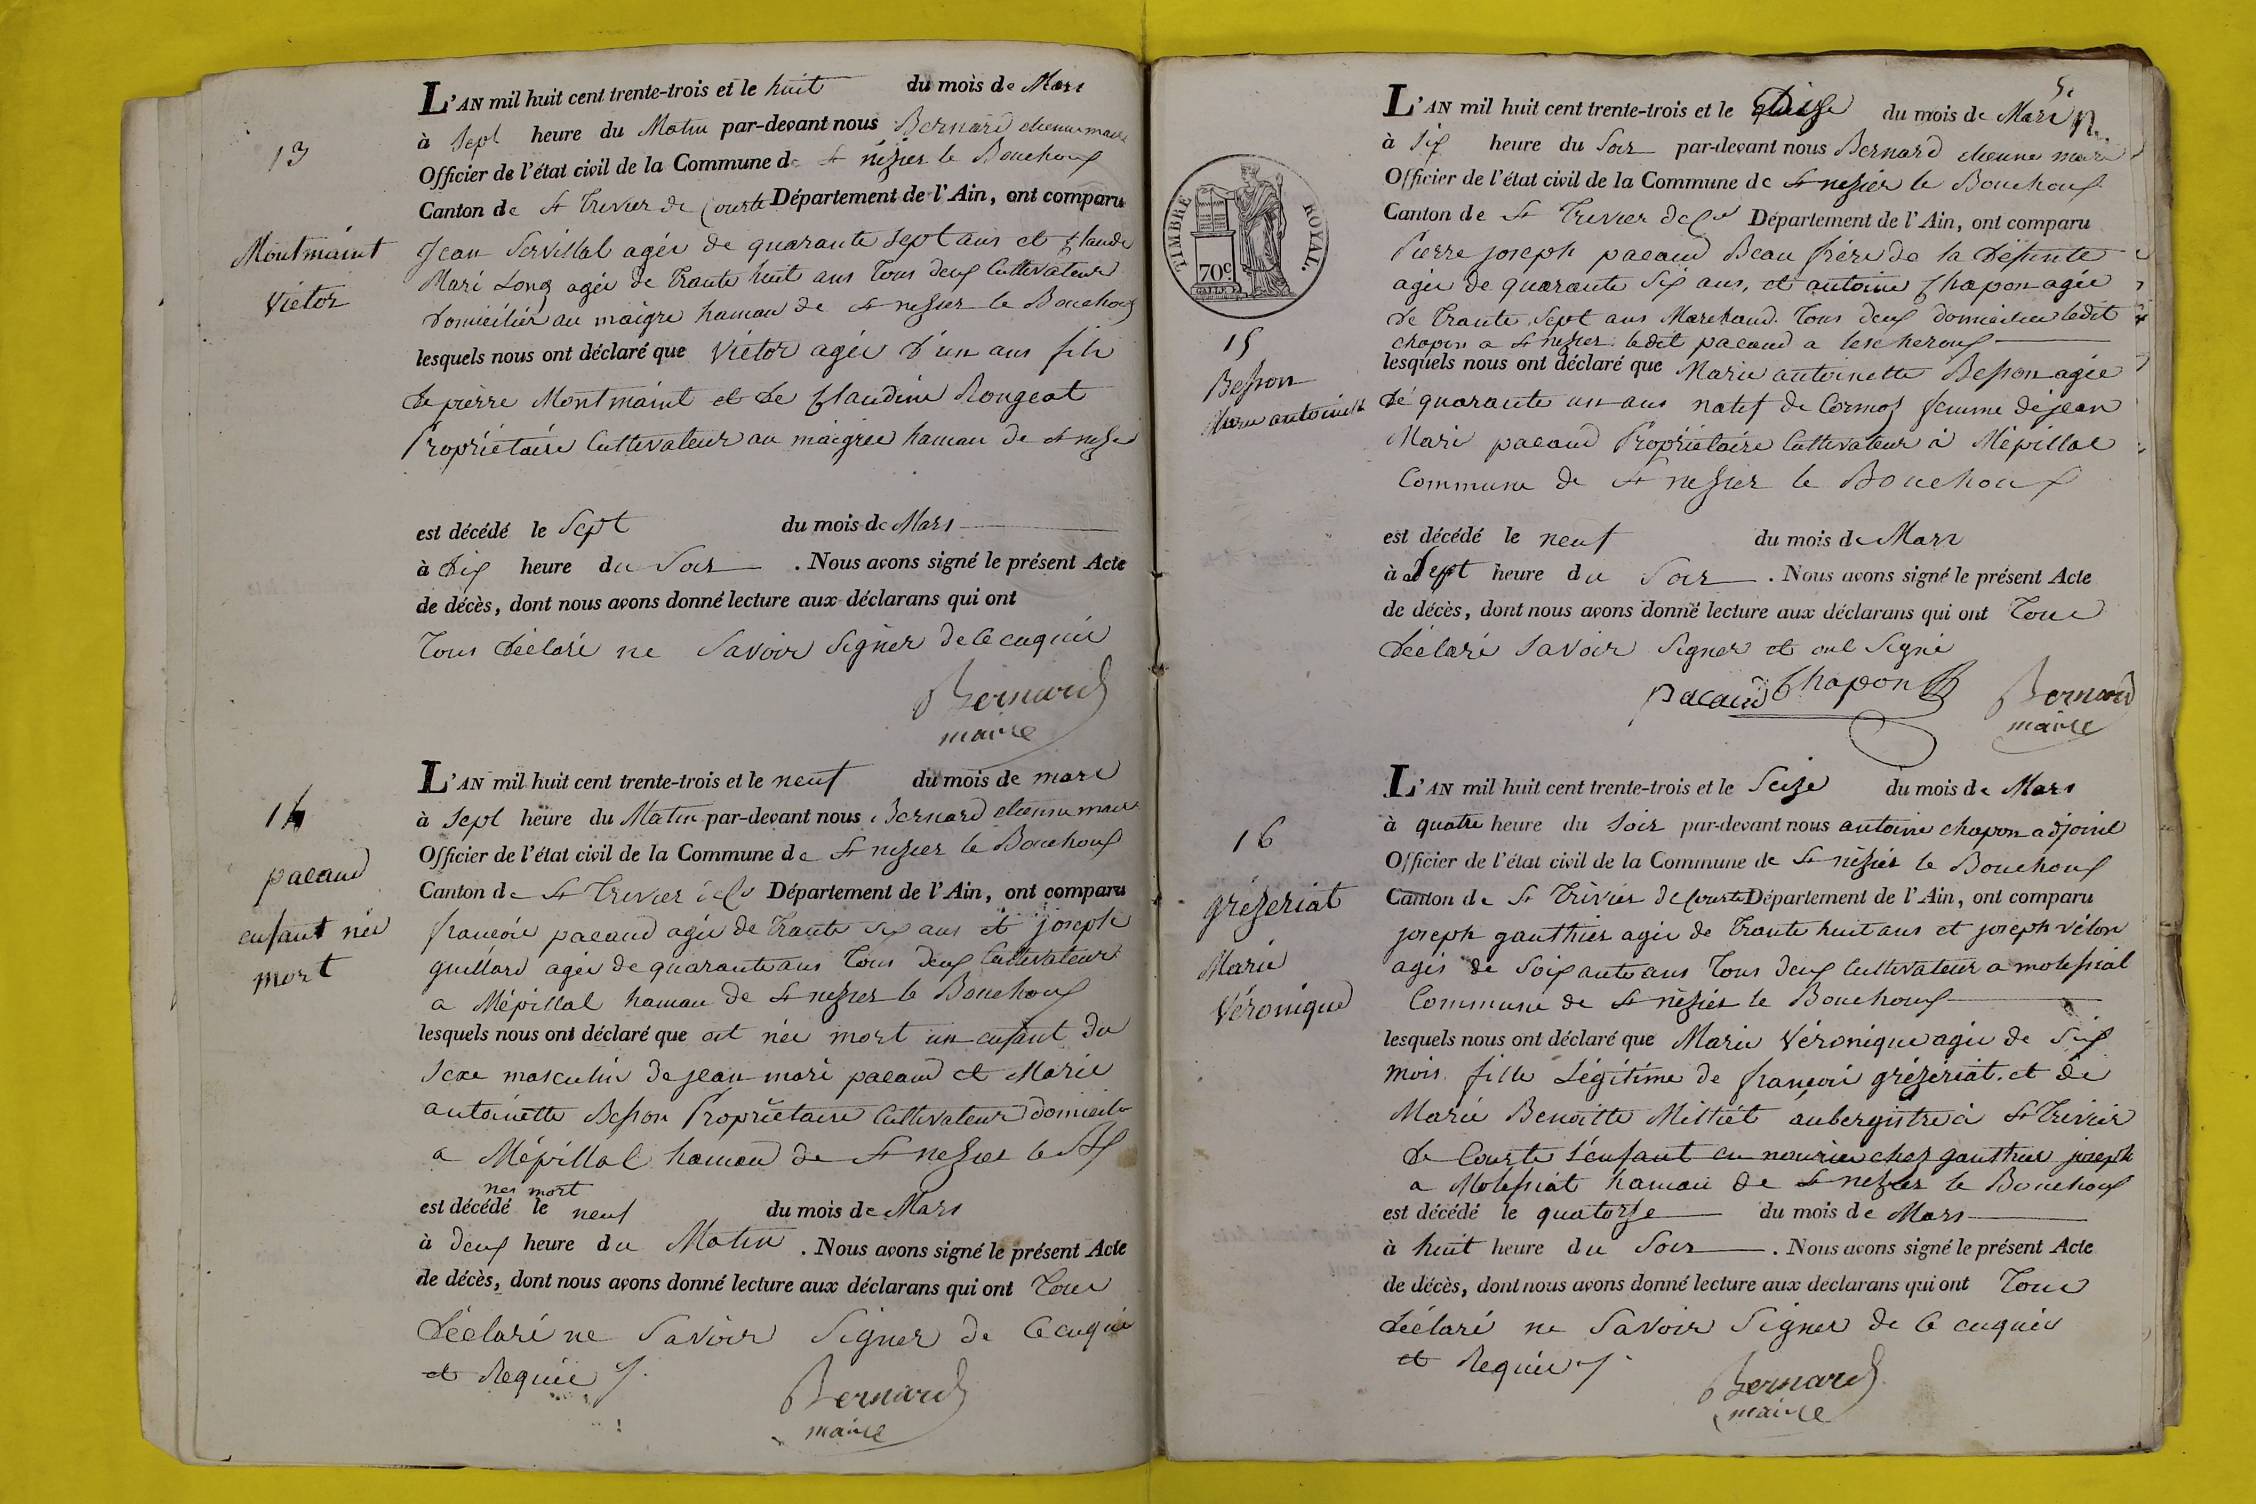 13
Montmaint
Victor
L'AN mil huit cent trente-trois et le huit du mois de Mars
à Sept heure du Matin par-devant nous Bernard etienne maire
Officier de l'état civil de la Commune de St nézier le Bouchoux
Canton de St Trivier de Courte Département de l'Ain, ont comparu
Jean Servillat agée de quarante Sept ans et Claude
Mari Long agée de Trante huit ans Tous deux Cultivateur
Domiciliés au maigre hamau de St nezier le Bouchoux
lesquels nous ont déclaré que Victor agée D'un ans fils
De pierre Montmaint et De Claudine Rongeat
Propriétaire Cultivateur au maigree hamau de St nezier
est décédé le Sept du mois de Mars
à Dix heure du Soir . Nous avons signé le présent Acte
de décès, dont nous avons donné lecture aux déclarans qui ont
Tous Déclaré ne Savoir Signer de ce enquie
Bernard
maire
14
pacaud
enfant née
mort
L'AN mil huit cent trente-trois et le neuf du mois de mars
à Sept heure du Matin par-devant nous Bernard etienne maire
Officier de l'état civil de la Commune de St nezier le Bouchoux
Canton de St Trivier Département de l'Ain, ont comparu
françois pacaud agée de Trante Six ans et joseph
guillard agée de quarante ans Tous deux Cultivateur
a Mépillat hamau de St nezier le Bouchoux
lesquels nous ont déclaré que est née mort un enfant du
Sexe masculin de jean mari pacaud et Marie
antoinette Besson Propriétaire Cultivateur domicile
a Mépillat hamau de St nezier le Bx
nee mort
est décédé le neuf du mois de Mars
à deux heure du Matin . Nous avons signé le présent Acte
de décès, dont nous avons donné lecture aux déclarans qui ont Tous
Déclaré ne Savoir Signer de ce enquie
et Requie
Bernard
maire
TIMBRE ROYAL.
70c
15
Besson
Marie antoinette
L'AN mil huit cent trente-trois et le Dize du mois de Mars
à Six heure du Soir par-devant nous Bernard etienne maire
Officier de l'état civil de la Commune de St nezier le Bouchoux
Canton de St Trivier de Cte Département de l'Ain, ont comparu
Pierre joseph pacaud Beau frére de la Défunte
agée de quarante Six ans, et antoine Chapon agée
de Trante Sept ans Marchand. Tous deux domicilier ledit
chapon a St nezier. ledit pacaud a lescheroux
lesquels nous ont déclaré que Marie antoinette Besson agée
De quarante un ans natif de Cormoz femme de jean
Mari pacaud Propriétaire Cultivateur à Mépillat
Commune de St nezier le Bouchoux
est décédé le neuf du mois de Mars
à Sept heure du Soir . Nous avons signé le présent Acte
de décès, dont nous avons donné lecture aux déclarans qui ont Tous
Déclaré Savoir Signer et ont Signé
Pacaud Chapon Bernard
maire
16
grézeriat
Marie
Véronique
L'AN mil huit cent trente-trois et le Seize du mois de Mars
à quatre heure du Soir par-devant nous antoine chapon adjoint
Officier de l'état civil de la Commune de St nézier le Bouchoux
Canton de St Trivier de Courte Département de l'Ain, ont comparu
joseph gauthier agée de Trante huit ans et joseph vélon
agés de Soixante ans Tous deux Cultivateur a molessiat
Commune de St nézier le Bouchoux
lesquels nous ont déclaré que Marie Véronique agée de Six
mois. fille Légitime de françois grézeriat. et de
Marie Benoitte Milliet aubergistre à St Trivier
De Courte L'enfant en nourice chez gauthier joseph
a Molessiat hamau de St nezier le Bouchoux
est décédé le quatorze du mois de Mars
à huit heure du Soir . Nous avons signé le présent Acte
de décès, dont nous avons donné lecture aux déclarans qui ont Tous
Déclaré ne Savoir Signer de ce enquis
et Requis
Bernard
maire